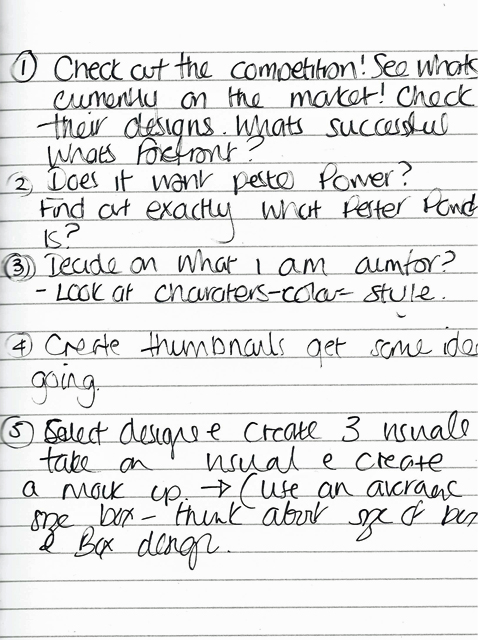 ① Check out the competition! See whats
currently on the market! Check
their designs. Whats successful
Whats forefront?
② Does it want pester Power?
Find out exactly what Pester Power
Is?
③ Decide on what I am aim for?
- Look at charaters-color- style.
④ Create thumbnails get some idea
going.
⑤ Select designs & create 3 visuals
take on visual & create
a mock up. → (use an average
size box - think about size of box
& Box design.